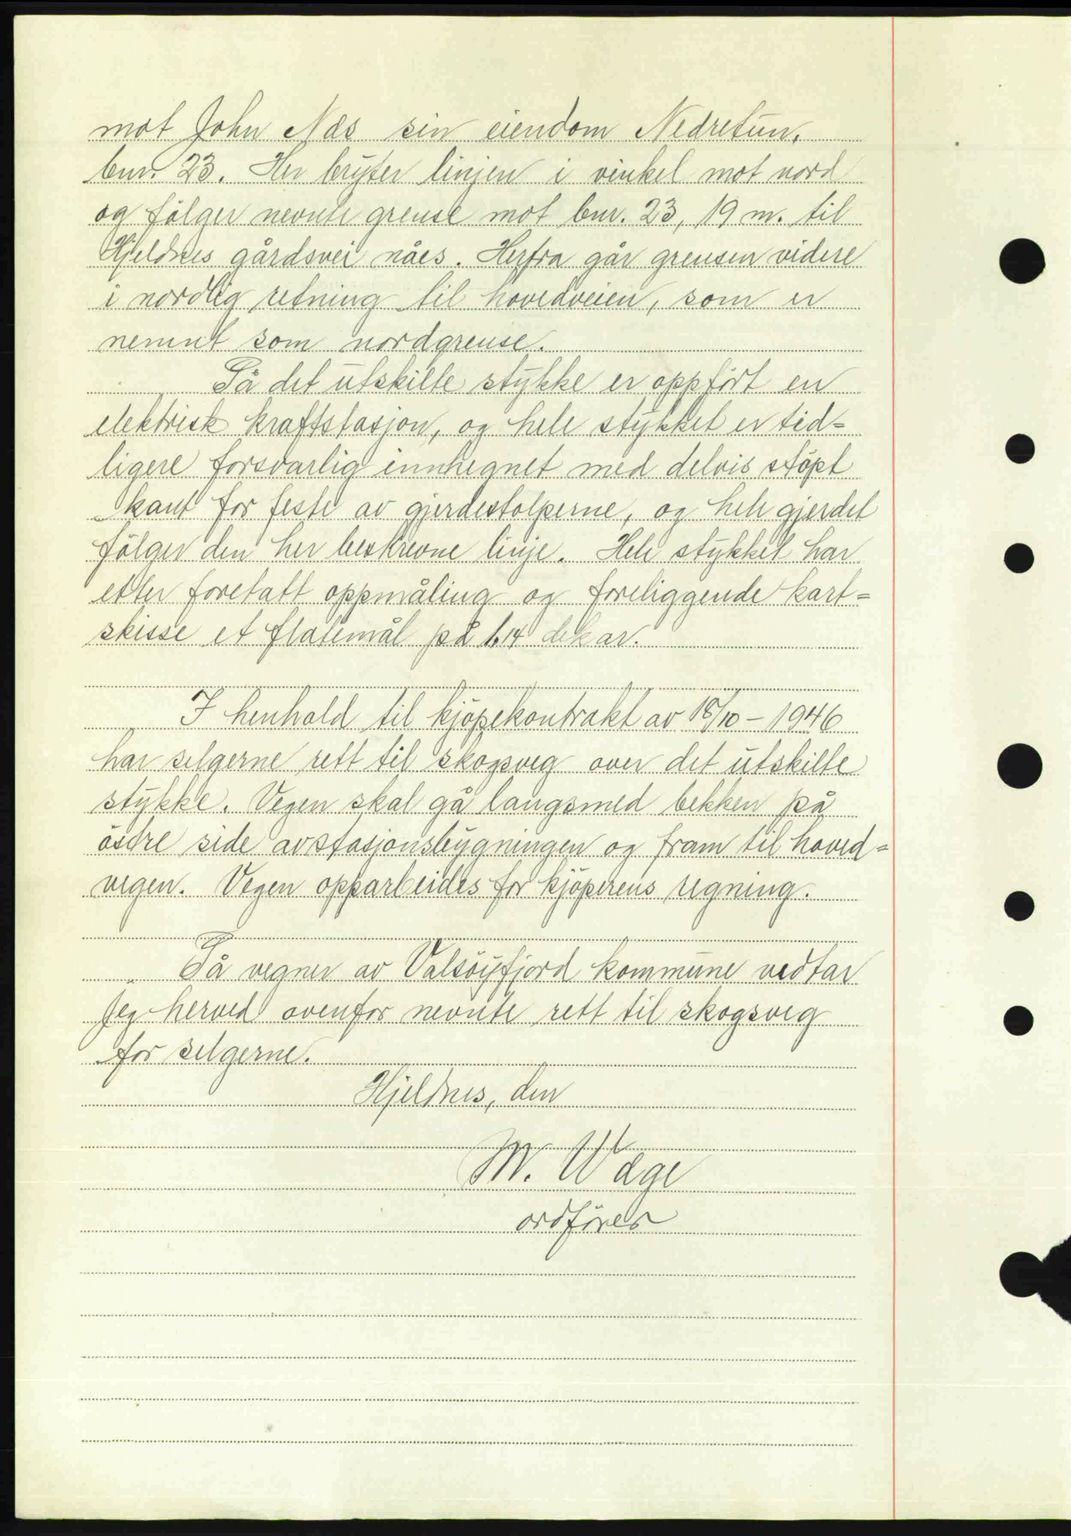 mot John Næs sin eiendom Nedretun,
bnr. 23. Her bryter linjen i vinkel mot nord
og følger nevnte grense mot bnr. 23, 19 m. til
Hjeldnes gårdsvei nåes. Herfra går grensen videre
i nordlig retning til hovedveien, som er
nemnt som nordgrense.
På det utskilte stykke er oppført en
elektrisk kraftstasjon, og hele stykket er tid=
ligere forsvarlig innhegnet med delvis støpt
kant for feste av gjerdestolperne, og hele gjerdet
følger den her beskrevne linje. Hele stykket har
etter foretatt oppmåling og foreliggende kart=
skisse et flatemål på 1,14 dekar.
I henhold til kjöpekontrakt av 18/10 – 1946
har selgerne rett til skogsveg over det utskilte
stykke. Vegen skal gå langsmed bekken på
östre side av stasjonsbygningen og fram til hoved=
vegen. Vegen opparbeides for kjöperens regning.
På vegner av Valsöyfjord kommune vedtar
jeg herved ovenfor nevnte rett til skogsveg
for selgerne.
Hjeldnes, den
M. Wæge
ordförer